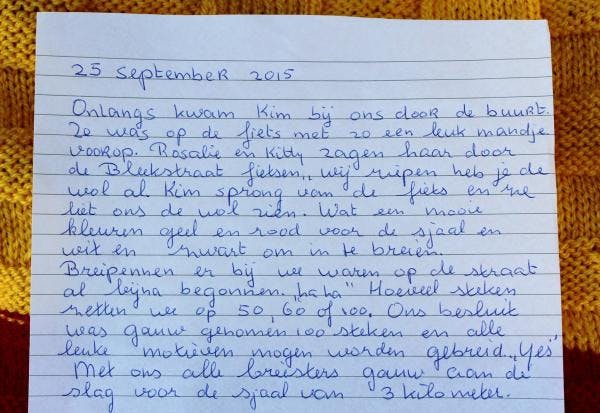 25 september 2015
Onlangs kwam Kim bij ons door de buurt.
Ze was op de fiets met zo een leuk mandje
voorop. Rosalie en Kitty zagen haar door
de Bleekstraat fietsen, wij riepen heb je de
wol al. Kim sprong van de fiets en ze
liet ons de wol zien. Wat een mooie
kleuren geel en rood voor de sjaal en
wit en zwart om in te breien.
Breipennen er bij we waren op de straat
al bijna begonnen. „ha ha" Hoeveel steken
zetten we op 50, 60 of 100. Ons besluit
was gauw genomen 100 steken en alle
leuke motieven mogen worden gebreid. „Yes"
Met ons alle breisters gauw aan de
slag voor de sjaal van 3 kilometer.